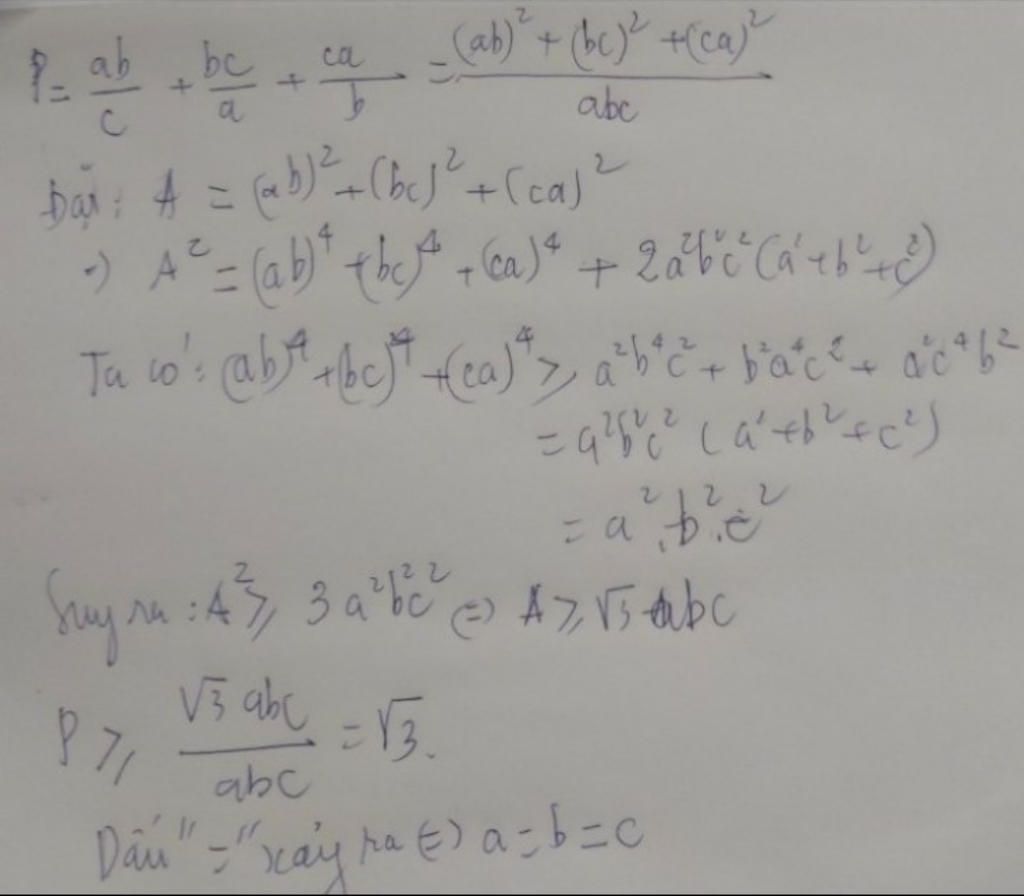 P = ab/c + bc/a + ca/b = ((ab)² + (bc)² + (ca)²)/abc
Đặt: A = (ab)² + (bc)² + (ca)²
→) A² = (ab)⁴ + (bc)⁴ + (ca)⁴ + 2a²b²c²(a² + b² + c²)
Ta có: (ab)⁴ + (bc)⁴ + (ca)⁴ ≥ a²b⁴c² + b²a⁴c² + a²c⁴b²
= a²b²c² (a² + b² + c²)
= a².b².c²
Suy ra: A² ≥ 3a²b²c² ⇔ A ≥ √3 abc
P ≥ √3 abc/abc = √3.
Dấu "=" xảy ra ⇔ a = b = c